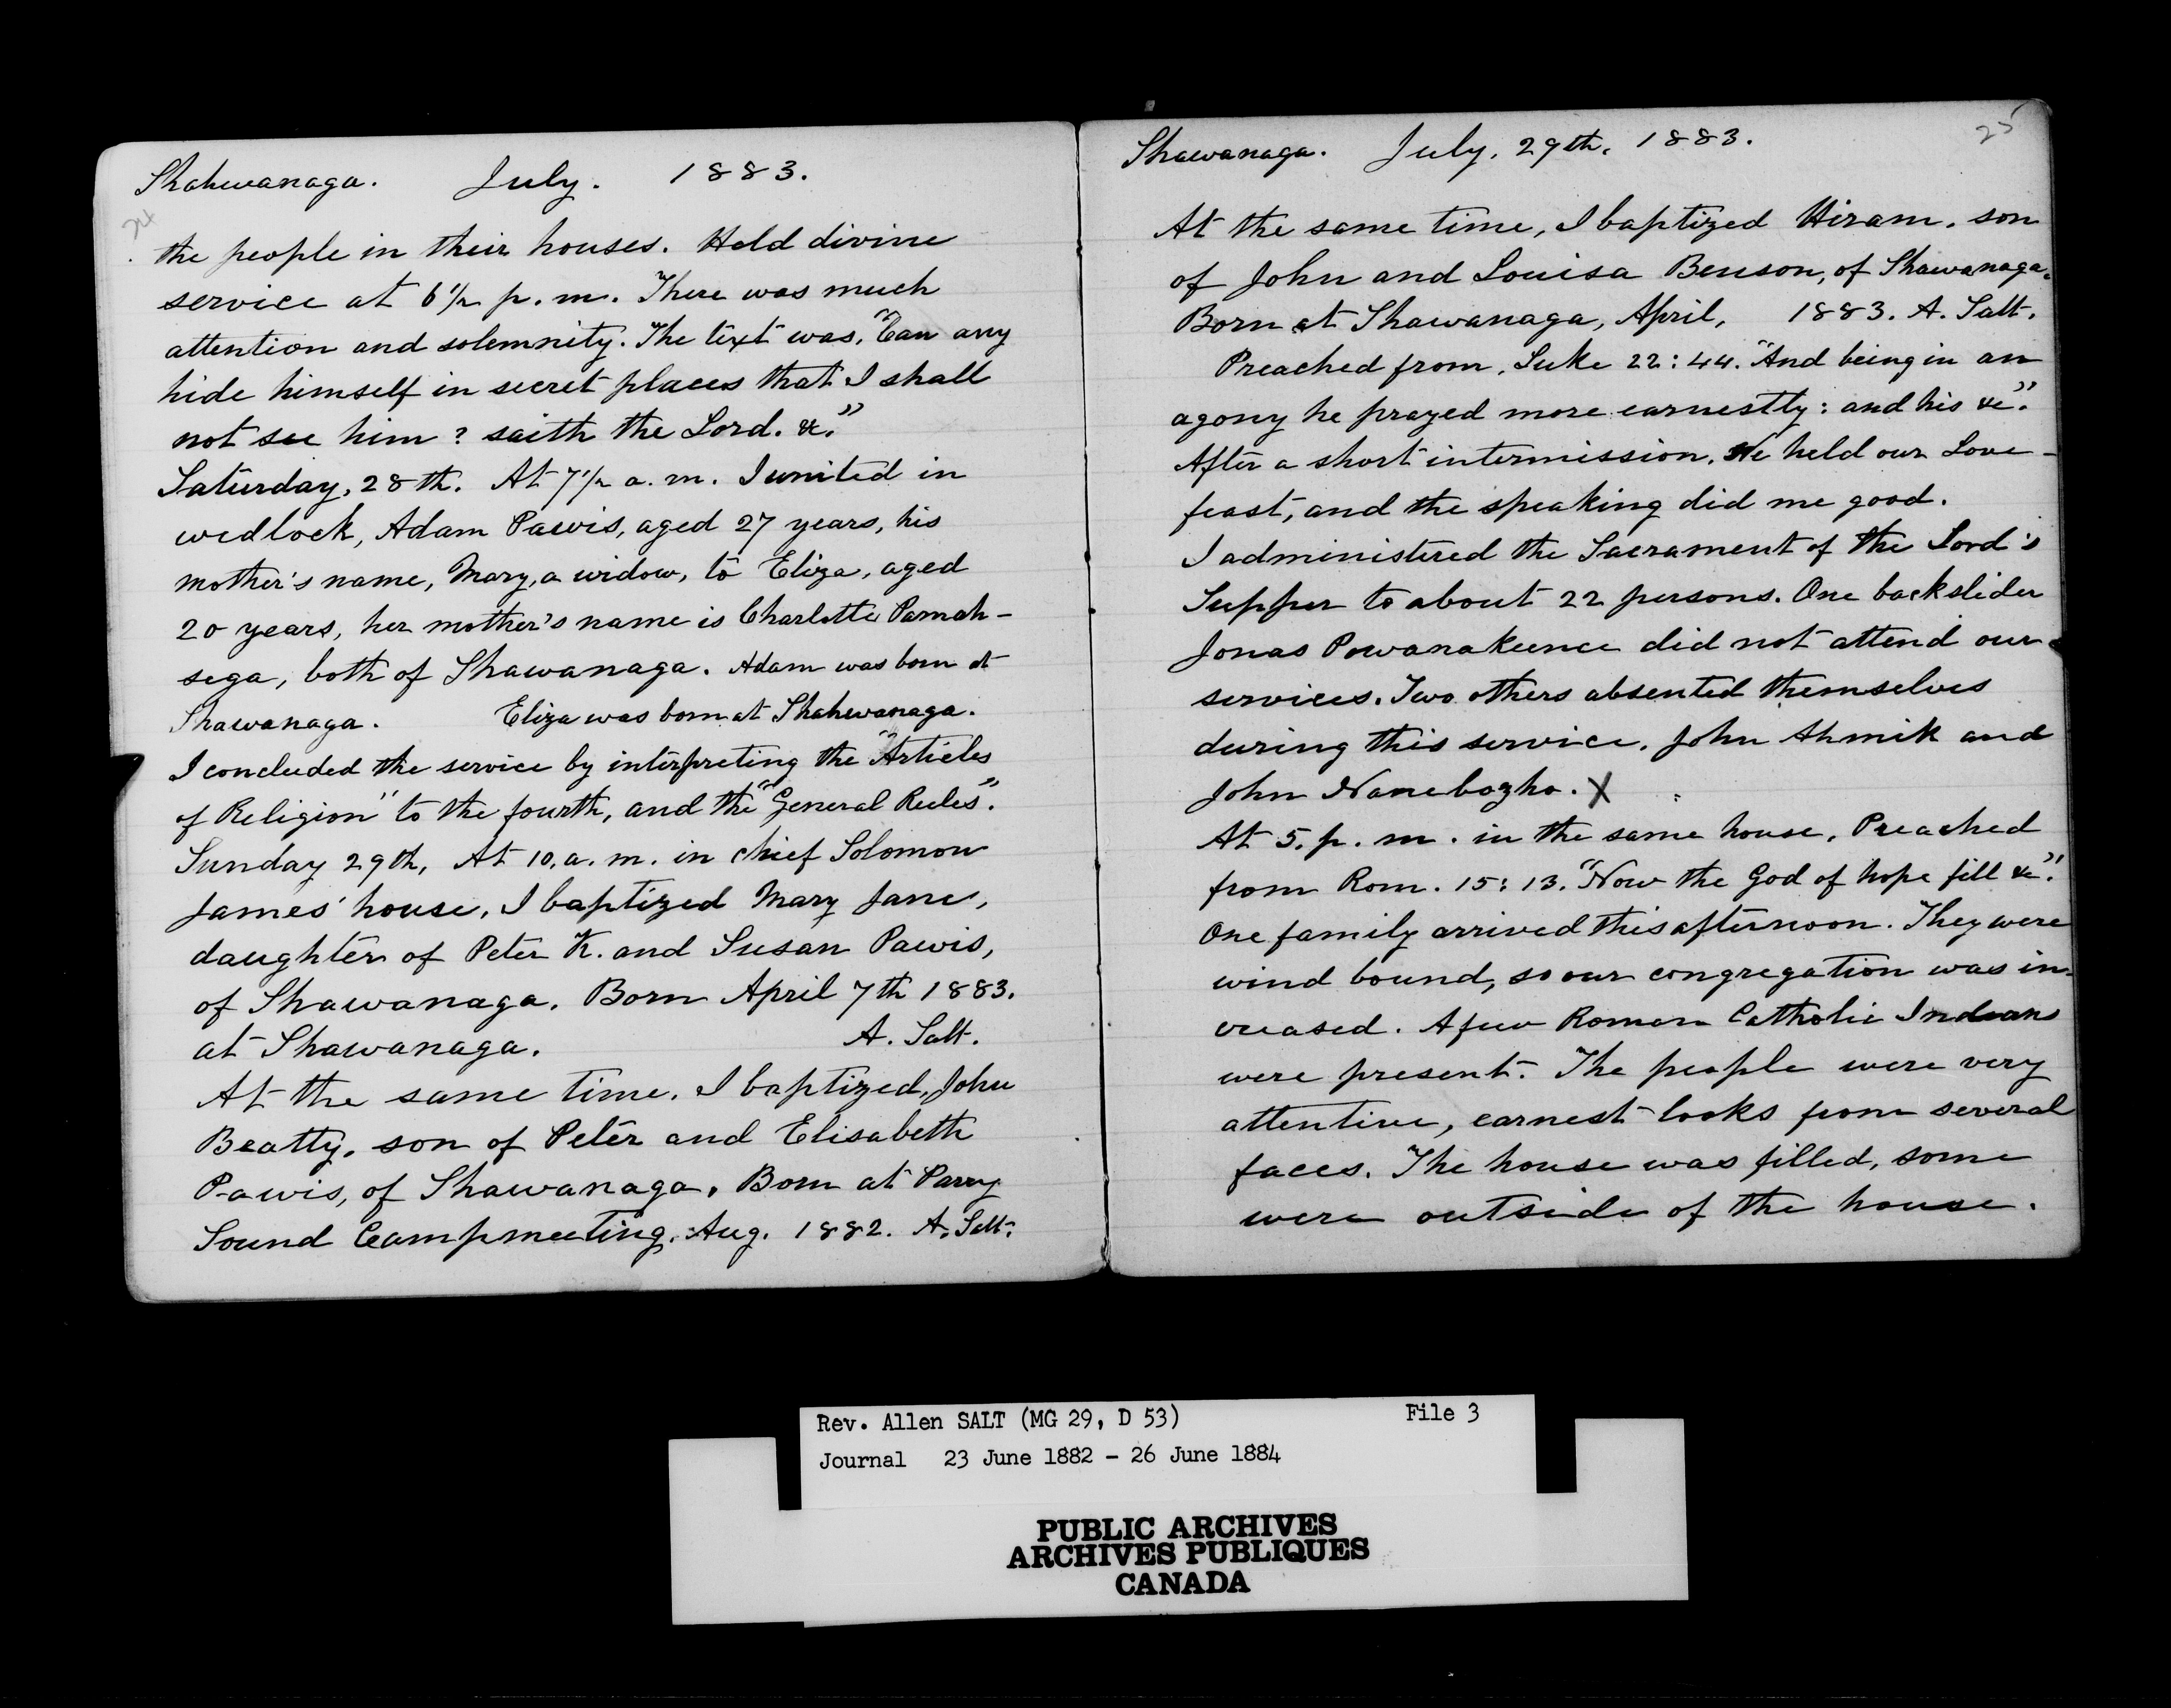 Shahwanaga. July. 1883.
24
the people in their houses. Held divine
service at 6 1/2 p.m. There was much
attention and solemnity. The text was, "Can any
hide himself in secret places that I shall
not see him? saith the Lord. &c."
Saturday, 28th. At 7 1/2 a.m. I united in
wedlock, Adam Pawis, aged 27 years, his
mother's name, Mary, a widow, to Eliza, aged
20 years, her mother's name is Charlotte Pamah-
sega, both of Shawanaga. Adam was born at
Shawanaga. Eliza was born at Shahwanaga.
I concluded the service by interpreting the "Articles
of Religion" to the fourth, and the "General Rules".
Sunday 29th, At 10, a.m. in chief Solomon
James' house, I baptized Mary Jane,
daughter of Peter K. and Susan Pawis,
of Shawanaga. Born April 7th 1883.
at Shawanaga. A. Salt.
At the same time, I baptized, John
Beatty, son of Peter and Elisabeth
Pawis, of Shawanaga, Born at Parry
Sound Campmeeting, Aug. 1882. A. Salt.
25
Shawanaga. July, 29th, 1883.
At the same time, I baptized Hiram, son
of John and Louisa Benson, of Shawanaga.
Born at Shawanaga, April, 1883. A. Salt.
Preached from, Luke 22:44. "And being in an
agony he prayed more earnestly: and his &c".
After a short intermission, We held our Love-
feast, and the speaking did me good.
I administered the Sacrament of the Lord's
Supper to about 22 persons. One backslider
Jonas Powanakeence did not attend our
services. Two others absented themselves
during this service, John Ahmik and
John Nanebozho. X
At 5, p.m. in the same house, Preached
from Rom. 15:13. "Now the God of hope fill &c".
One family arrived this afternoon. They were
wind bound, so our congregation was in-
creased. A few Roman Catholic Indians
were present. The people were very
attentive, earnest looks from several
faces. The house was filled, some
were outside of the house.
Rev. Allen SALT (MG 29, D 53) File 3
Journal 23 June 1882 - 26 June 1884
PUBLIC ARCHIVES
ARCHIVES PUBLIQUES
CANADA